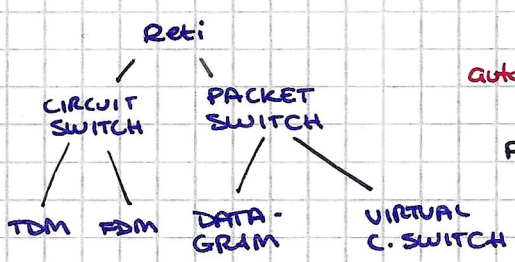 Reti
CIRCUIT
SWITCH
PACKET
SWITCH
TDM FDM
DATA-
GRAM
VIRTUAL
C. SWITCH